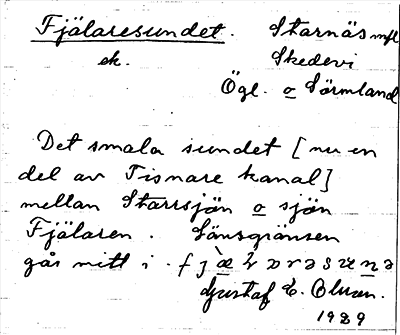 Fjälaresundet. Starnäs mfl
ek. Skedevi
Ögl. o Sörmland
Det smala sundet [nu en
del av Tisnare kanal]
mellan Starrsjön o sjön
Fjälaren. Länsgränsen
går mitt i.
Gustaf E.
1929